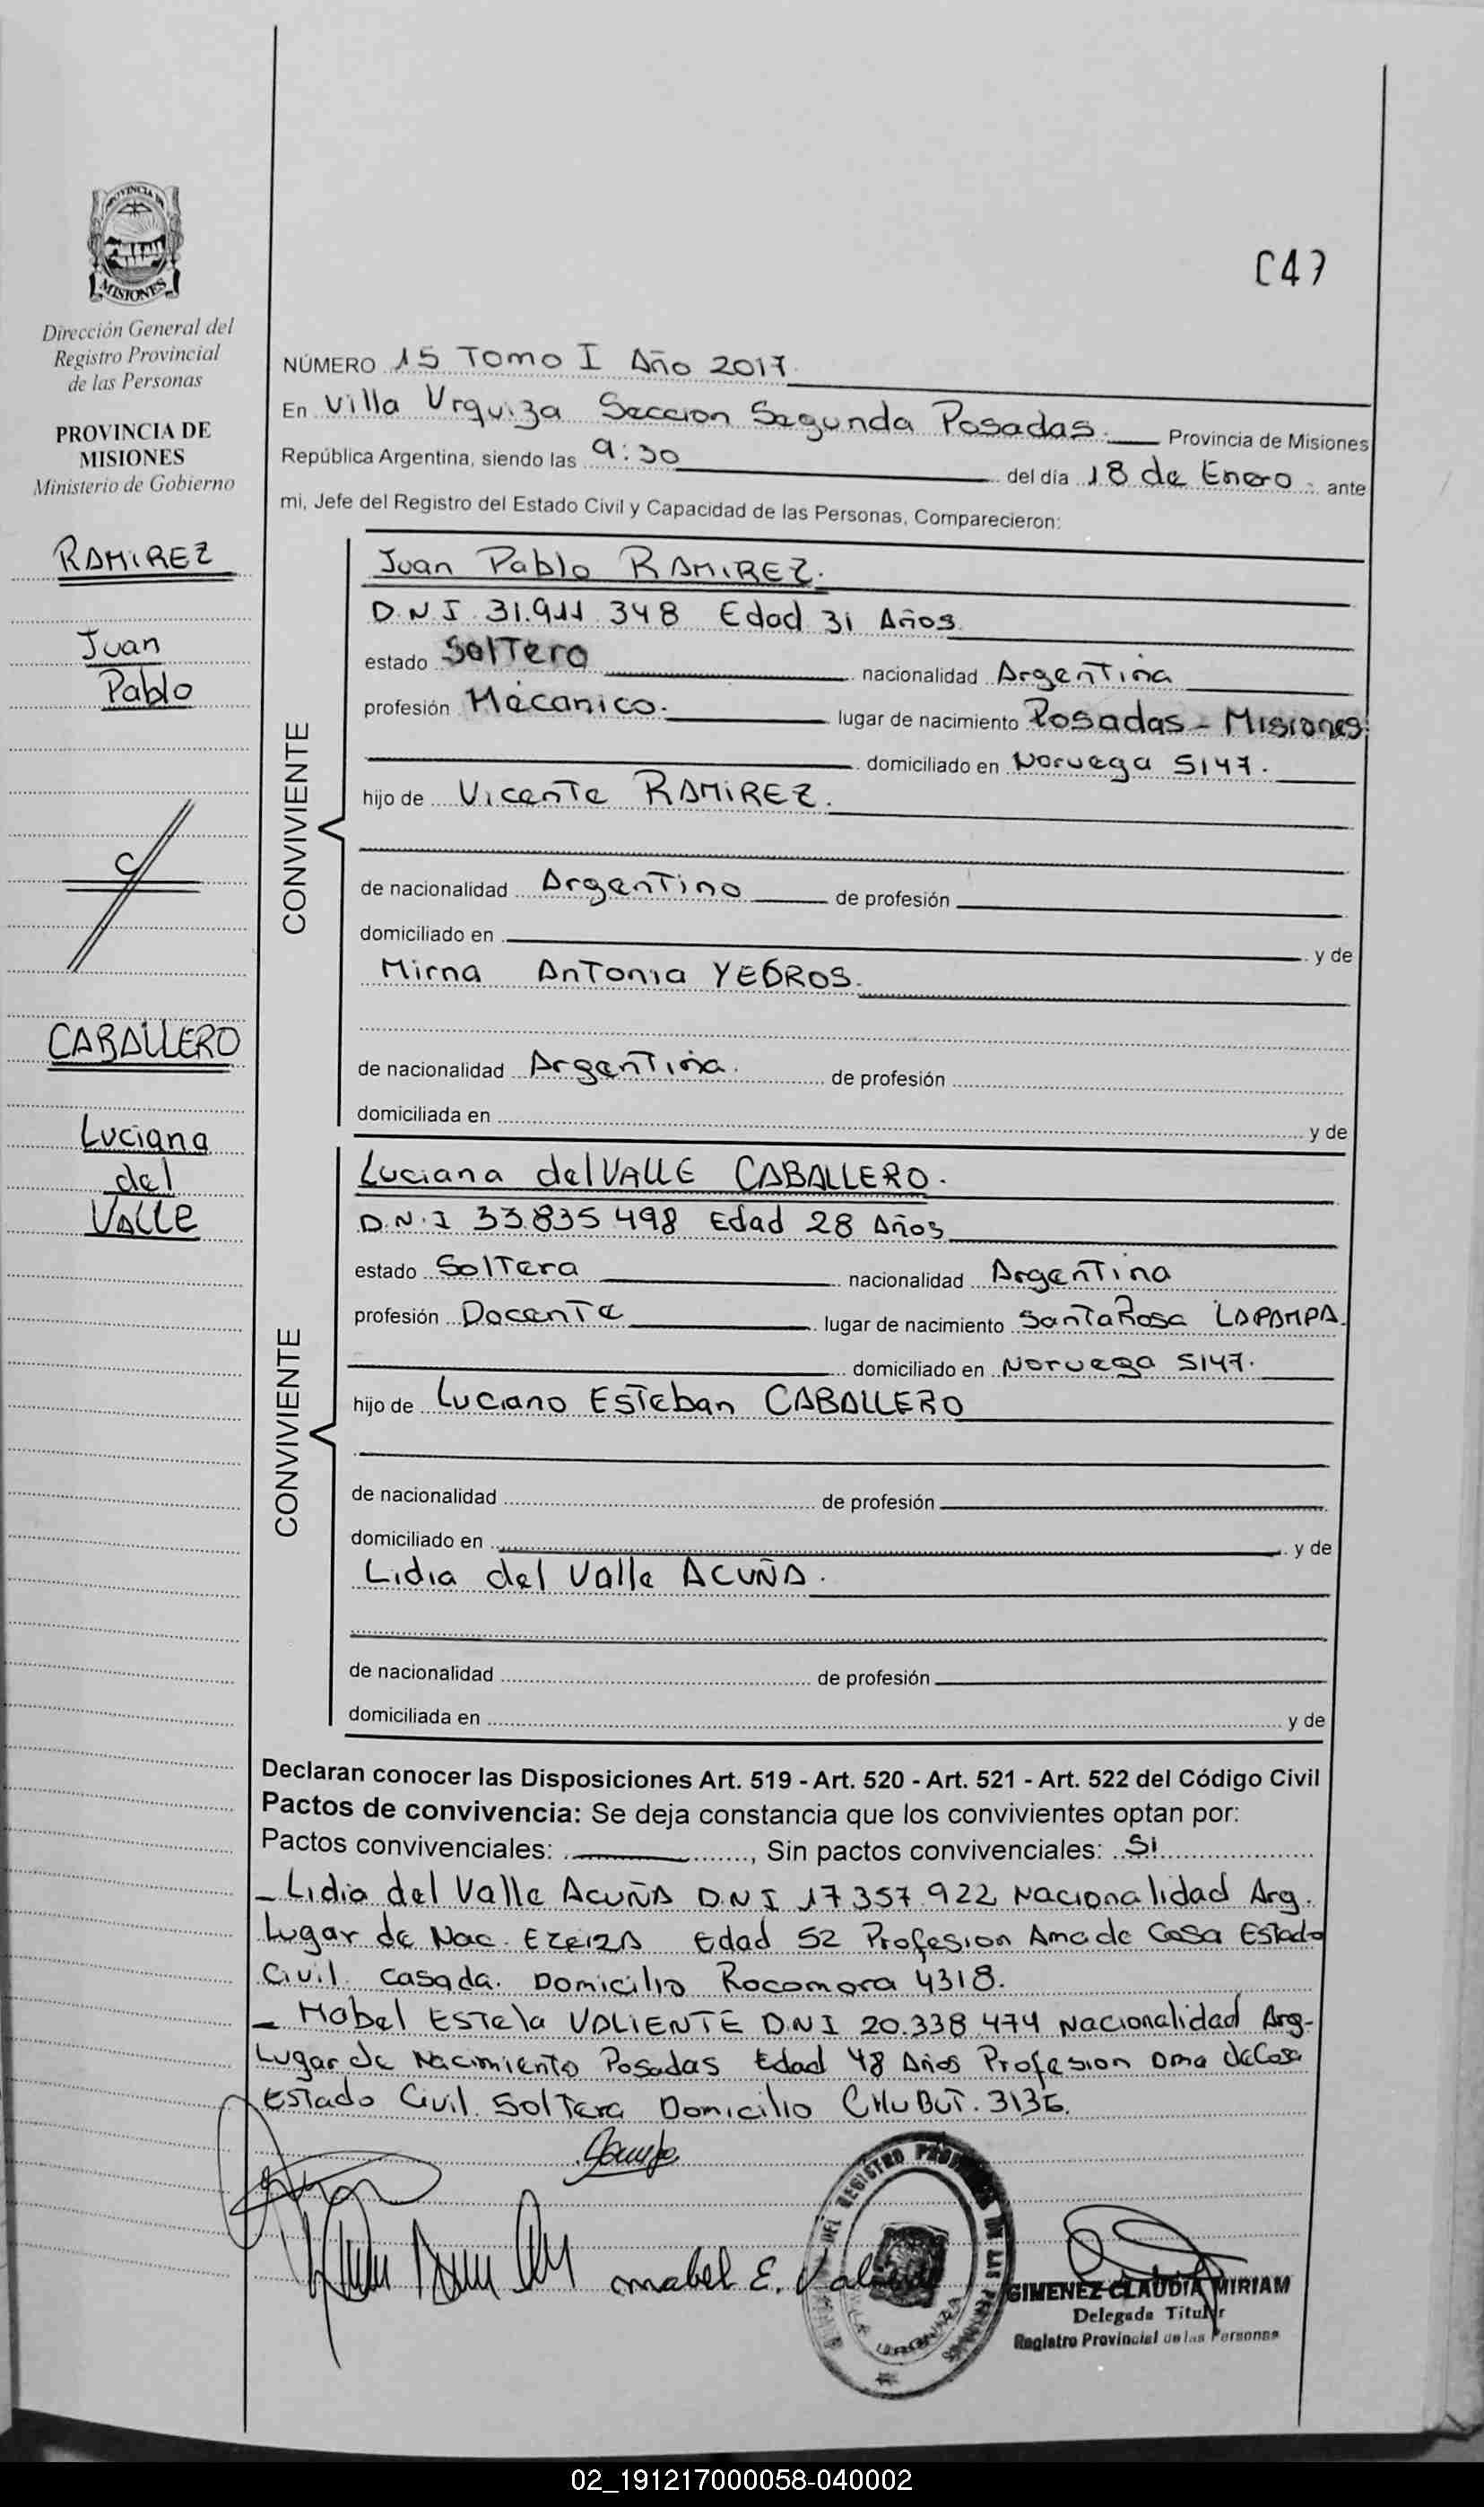 PROVINCIA DE
MISIONES
Dirección General del
Registro Provincial
de las Personas
PROVINCIA DE
MISIONES
Ministerio de Gobierno
RAMIREZ
Juan
Pablo
C/
CABALLERO
Luciana
del
VALLE
C47
NÚMERO 15 Tomo I Año 2017
En Villa Urquiza Seccion Segunda Posadas. Provincia de Misiones
República Argentina, siendo las 9:30 del día 18 de Enero - ante
mi, Jefe del Registro del Estado Civil y Capacidad de las Personas, Comparecieron:
CONVIVIENTE
Juan Pablo RAMIREZ.
D.N.I 31.911.348 Edad 31 Años
estado Soltero nacionalidad Argentina
profesión Mecanico. lugar de nacimiento Posadas - Misiones.
domiciliado en Noruega 5147.
hijo de Vicente RAMIREZ.
de nacionalidad Argentino de profesión
domiciliado en y de
Mirna Antonia YEGROS.
de nacionalidad Argentina. de profesión
domiciliada en y de
CONVIVIENTE
Luciana del VALLE CABALLERO.
D.N.I 33.835 498 Edad 28 Años
estado Soltera nacionalidad Argentina
profesión Docente lugar de nacimiento Santa Rosa LA PAMPA.
domiciliado en Noruega 5147.
hijo de Luciano Esteban CABALLERO
de nacionalidad de profesión
domiciliado en y de
Lidia del Valle ACUÑA.
de nacionalidad de profesión
domiciliada en y de
Declaran conocer las Disposiciones Art. 519 - Art. 520 - Art. 521 - Art. 522 del Código Civil
Pactos de convivencia: Se deja constancia que los convivientes optan por:
Pactos convivenciales: , Sin pactos convivenciales: SI
- Lidia del Valle ACUÑA D.N.I 17 357.922 Nacionalidad Arg.
Lugar de Nac. EZEIZA Edad 52 Profesion Ama de Casa Estado
Civil. casada. Domicilio Rocamora 4318.
- Mabel Estela VALIENTE D.N.I 20.338.474 Nacionalidad Arg-
Lugar de Nacimiento Posadas Edad 48 Años Profesion Ama de Casa
Estado Civil. Soltera Domicilio CHUBUT. 3136.
Mabel E. Val
DEL REGISTRO PROVINCIAL DE LAS PERSONAS
VILLA URQUIZA
GIMENEZ CLAUDIA MIRIAM
Delegada Titular
Registro Provincial de las Personas
02_191217000058-040002